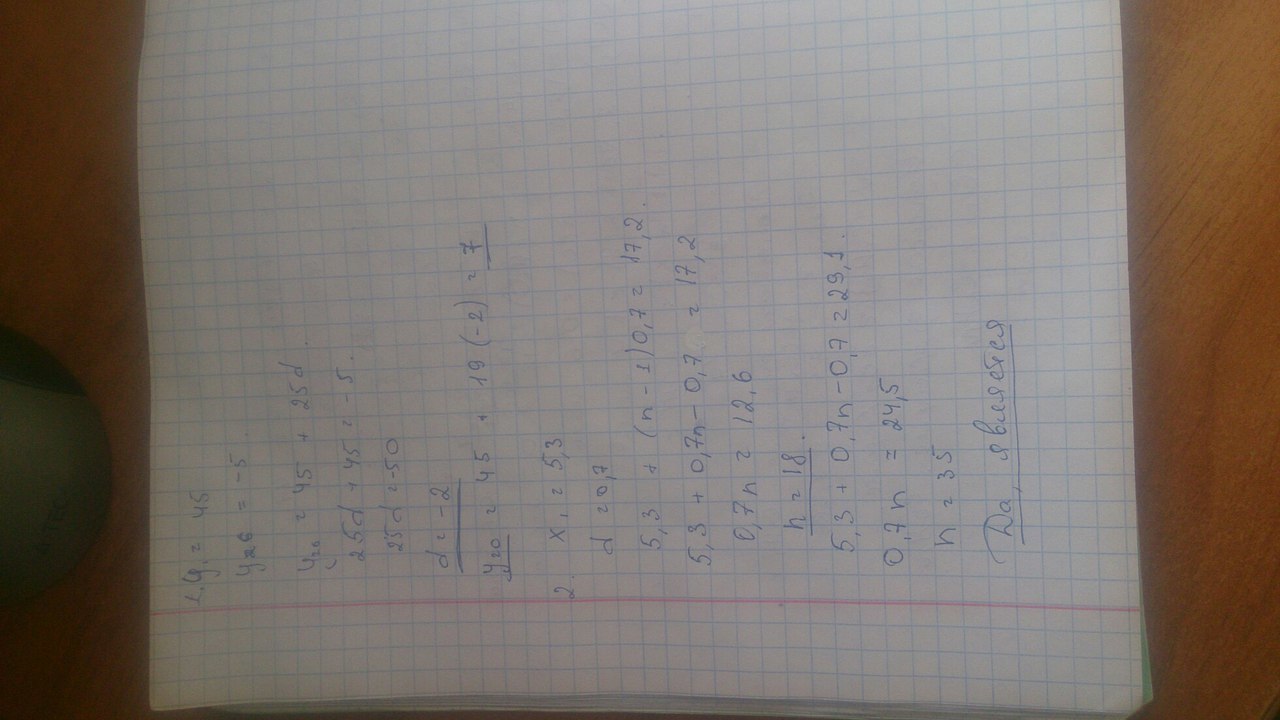 1. y₁ = 45
y₂₆ = -5.
y₂₆ = 45 + 25d.
25d + 45 = -5.
25d = -50
d = -2
y₂₀ = 45 + 19 (-2) = 7
2. x₁ = 5,3
d = 0,7
5,3 + (n - 1) 0,7 = 17,2.
5,3 + 0,7n - 0,7 = 17,2
0,7n = 12,6
n = 18.
5,3 + 0,7n - 0,7 = 29,1.
0,7n = 24,5
n = 35
Да, является